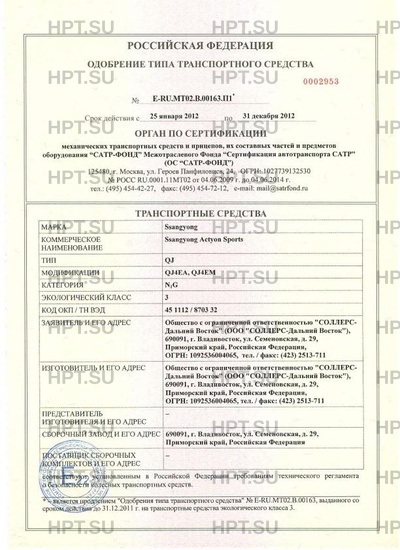 HPT.SU HPT.SU HPT.SU
РОССИЙСКАЯ ФЕДЕРАЦИЯ
ОДОБРЕНИЕ ТИПА ТРАНСПОРТНОГО СРЕДСТВА
0002953
№ E-RU.MT02.B.00163.П1*
Срок действия с 25 января 2012 по 31 декабря 2012
ОРГАН ПО СЕРТИФИКАЦИИ
механических транспортных средств и прицепов, их составных частей и предметов
оборудования "САТР-ФОНД" Межотраслевого Фонда "Сертификация автотранспорта САТР"
(ОС "САТР-ФОНД")
125480, г. Москва, ул. Героев Панфиловцев, 24, ОГРН: 1027739132530
№ РОСС RU.0001.11МТ02 от 04.06.2009 г. до 04.06.2014 г.
тел.: (495) 454-42-27, факс: (495) 454-72-12, e-mail: mail@satrfond.ru
ТРАНСПОРТНЫЕ СРЕДСТВА
МАРКА Ssangyong
КОММЕРЧЕСКОЕ НАИМЕНОВАНИЕ Ssangyong Actyon Sports
ТИП QJ
МОДИФИКАЦИИ QJ4EA, QJ4EM
КАТЕГОРИЯ N₁G
ЭКОЛОГИЧЕСКИЙ КЛАСС 3
КОД ОКП / ТН ВЭД 45 1112 / 8703 32
ЗАЯВИТЕЛЬ И ЕГО АДРЕС Общество с ограниченной ответственностью "СОЛЛЕРС-
Дальний Восток" (ООО "СОЛЛЕРС-Дальний Восток"),
690091, г. Владивосток, ул. Семеновская, д. 29,
Приморский край, Российская Федерация,
ОГРН: 1092536004065, тел. / факс: (423) 2513-711
ИЗГОТОВИТЕЛЬ И ЕГО АДРЕС Общество с ограниченной ответственностью "СОЛЛЕРС-
Дальний Восток" (ООО "СОЛЛЕРС-Дальний Восток"),
690091, г. Владивосток, ул. Семеновская, д. 29,
Приморский край, Российская Федерация,
ОГРН: 1092536004065, тел. / факс: (423) 2513-711
ПРЕДСТАВИТЕЛЬ
ИЗГОТОВИТЕЛЯ И ЕГО АДРЕС –
СБОРОЧНЫЙ ЗАВОД И ЕГО АДРЕС 690091, г. Владивосток, ул. Семеновская, д. 29,
Приморский край, Российская Федерация
ПОСТАВЩИК СБОРОЧНЫХ
КОМПЛЕКТОВ И ЕГО АДРЕС –
соответствуют установленным в Российской Федерации требованиям технического регламента
о безопасности колесных транспортных средств.
* – является продлением "Одобрения типа транспортного средства" № E-RU.MT02.B.00163, выданного со
сроком действия до 31.12.2011 г. на транспортные средства экологического класса 3.